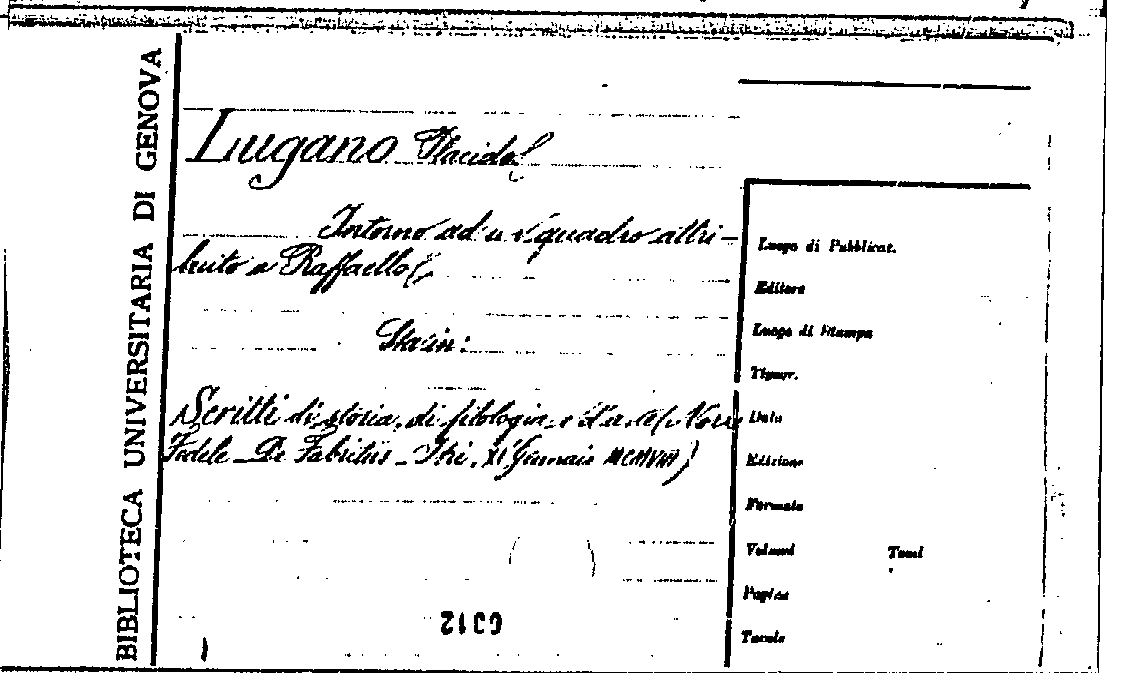 BIBLIOTECA UNIVERSITARIA DI GENOVA
Lugano Placido
Intorno ad un quadro attri-
buito a Raffaello
Sta in:
Scritti di storia, di filologia e d'arte (Nozze
Fedele - De Fabritiis - XI Gennaio MCMVIII)
Luogo di Pubblicat.
Editore
Luogo di Stampa
Tipogr.
Data
Edizione
Formato
Volumi Tomi
Pagine
Tavole